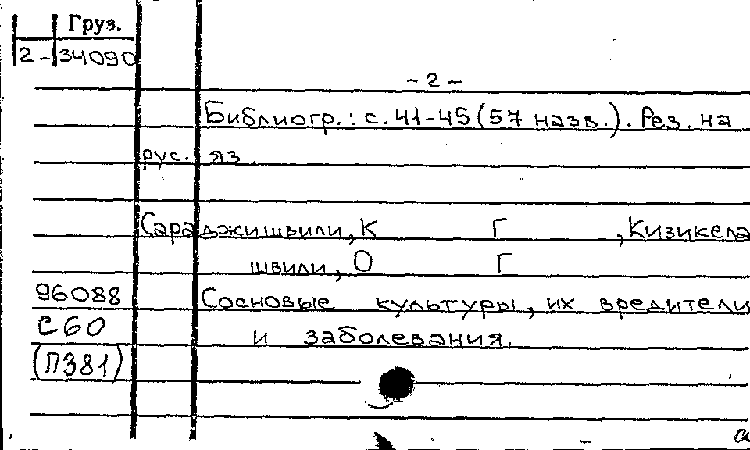 Груз.
2-34090
- 2 -
Библиогр.: с. 41-45 (57 назв.). Рез. на
рус. яз.
Сараджишвили, К Г , Кизикела
швили, О Г
96088 Сосновые культуры, их вредители
С60 и заболевания.
(П381)